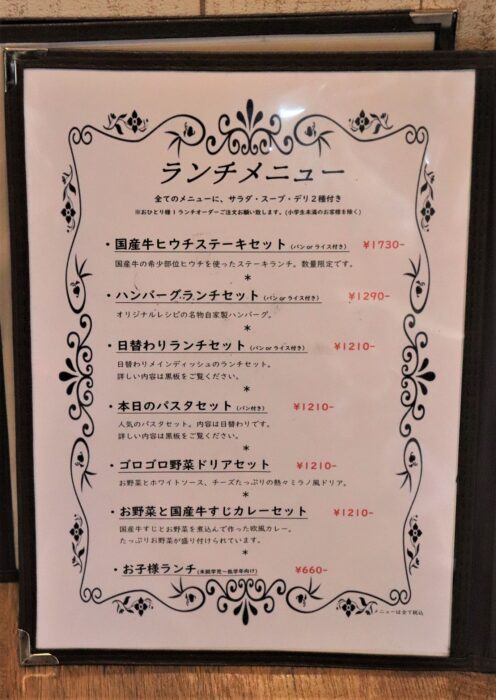 ランチメニュー
全てのメニューに、サラダ・スープ・デリ２種付き
※おひとり様１ランチオーダーご注文お願い致します。(小学生未満のお客様を除く)
・国産牛ヒウチステーキセット(パン or ライス付き) ¥1730-
国産牛の希少部位ヒウチを使ったステーキランチ。数量限定です。
*
・ハンバーグランチセット(パン or ライス付き) ¥1290-
オリジナルレシピの名物自家製ハンバーグ。
*
・日替わりランチセット(パン or ライス付き) ¥1210-
日替わりメインディッシュのランチセット。
詳しい内容は黒板をご覧ください。
*
・本日のパスタセット(パン付き) ¥1210-
人気のパスタセット。内容は日替わりです。
詳しい内容は黒板をご覧ください。
*
・ゴロゴロ野菜ドリアセット ¥1210-
お野菜とホワイトソース、チーズたっぷりの熱々ミラノ風ドリア。
*
・お野菜と国産牛すじカレーセット ¥1210-
国産牛すじとお野菜を煮込んで作った欧風カレー。
たっぷりお野菜が盛り付けられています。
*
・お子様ランチ(未就学児〜低学年向け) ¥660-
メニューは全て税込